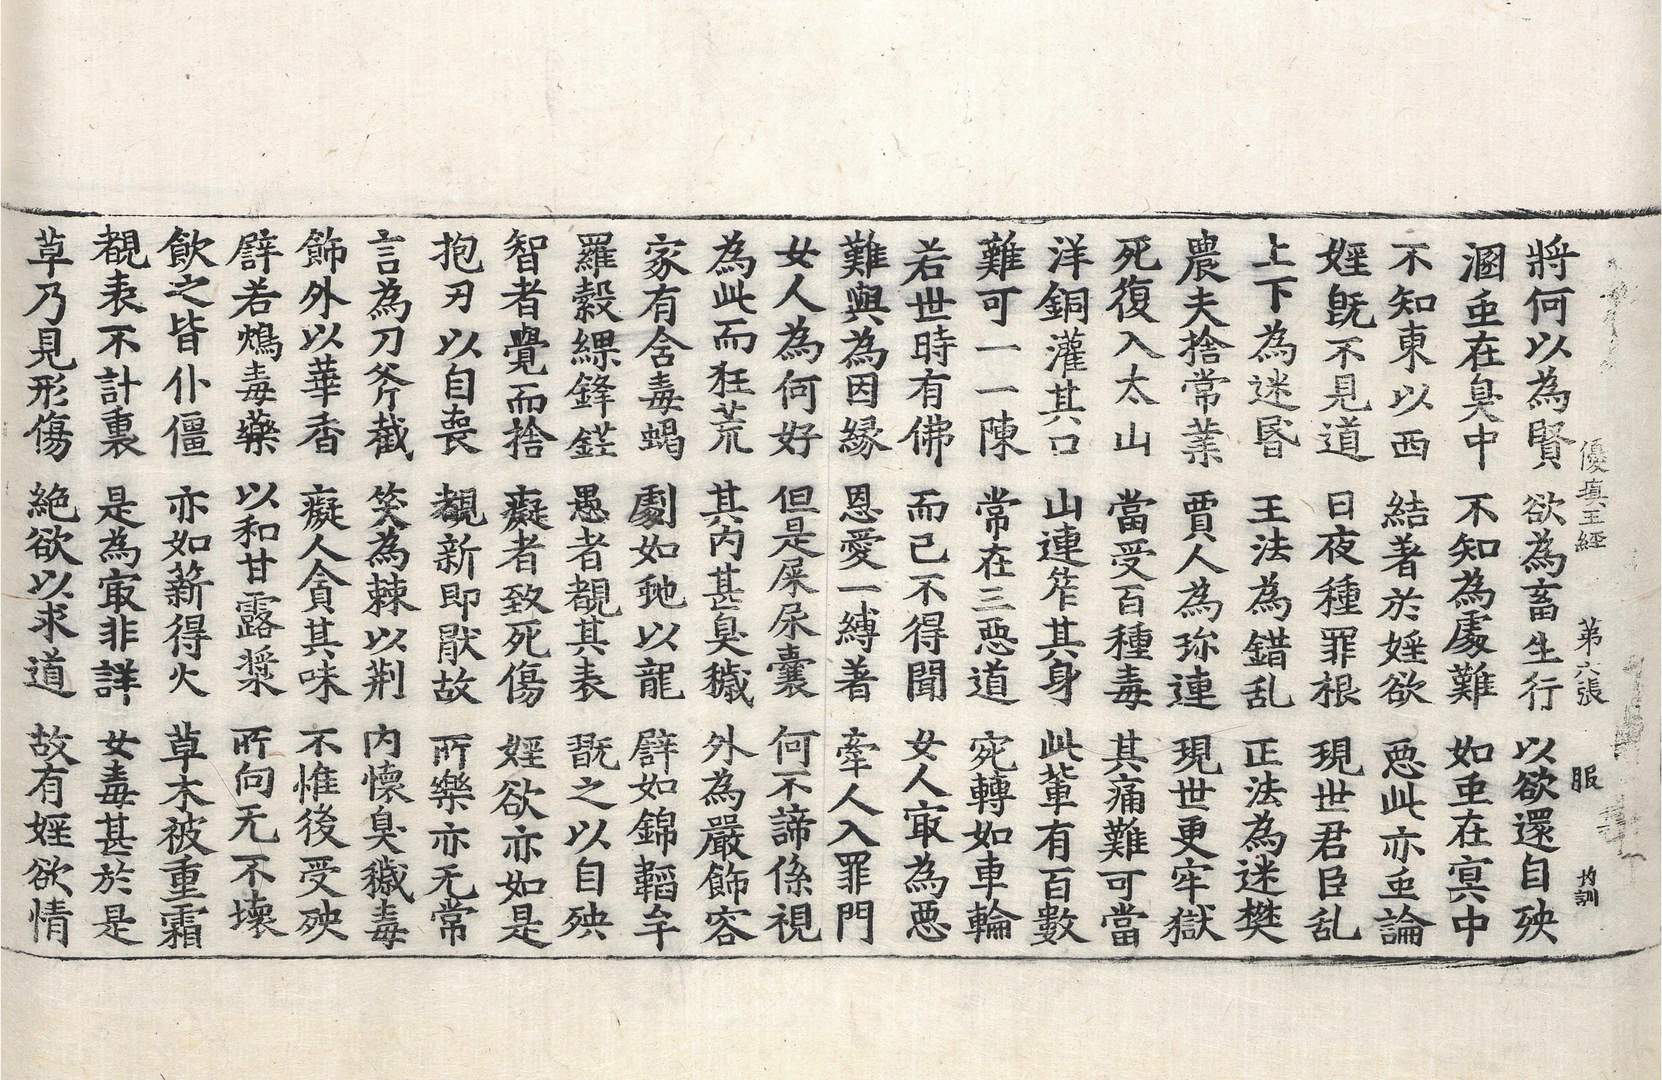 優填王經 第六張 服 均訓
將何以為賢 欲為畜生行 以欲還自殃
溷虫在臭中 不知為處難 如虫在㝠中
不知東以西 結著於婬欲 惡此亦虫論
婬旣不見道 日夜種罪根 現世君臣乱
上下為迷昬 王法為錯乱 正法為迷樊
農夫捨常業 賈人為珎連 現世更牢獄
死復入太山 當受百種毒 其痛難可當
洋銅灌其口 山連笮其身 此軰有百數
難可一一陳 常在三惡道 宛轉如車輪
若世時有佛 而己不得聞 女人㝡為惡
難與為因緣 恩愛一縛著 牽人入罪門
女人為何好 但是屎尿囊 何不諦係視
為此而狂荒 其內甚臭穢 外為嚴飾容
家有含毒蝎 劇如虵以龍 譬如錦韜牟
羅縠緤鋒鋩 愚者覩其表 翫之以自殃
智者覺而捨 癡者致死傷 婬欲亦如是
抱刃以自喪 覩新即猒故 所樂亦无常
言為刀斧截 笑為棘以荆 內懷臭穢毒
飾外以華香 癡人貪其味 不惟後受殃
譬若鴆毒藥 以和甘露漿 所向无不壞
飲之皆仆僵 亦如薪得火 草木被重霜
覩表不計裏 是為㝡非詳 女毒甚於是
草乃見形傷 絕欲以求道 故有婬欲情